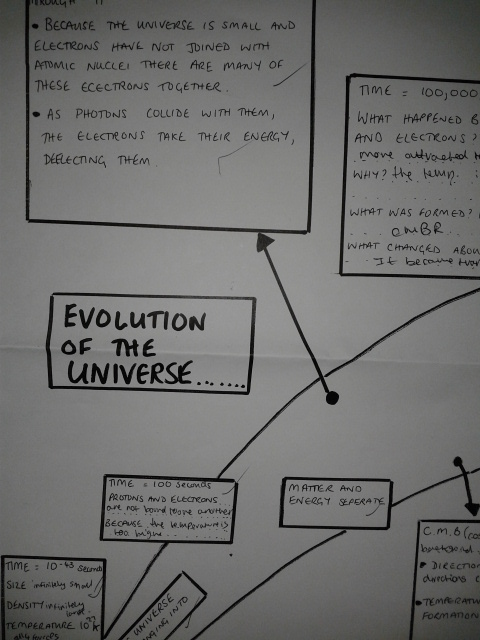 THROUGH IT
• BECAUSE THE UNIVERSE IS SMALL AND
ELECTRONS HAVE NOT JOINED WITH
ATOMIC NUCLEI THERE ARE MANY OF
THESE ECECTRONS TOGETHER.
• AS PHOTONS COLLIDE WITH THEM,
THE ELECTRONS TAKE THEIR ENERGY,
DEFLECTING THEM.
TIME = 100,000
WHAT HAPPENED B
AND ELECTRONS?
move attracted
WHY? the temp.
WHAT WAS FORMED?
CMBR
WHAT CHANGED ABOU
It became tran
EVOLUTION
OF THE
UNIVERSE.......
TIME = 100 seconds
PROTONS AND ELECTRONS
are not bound to one another
BECAUSE the temperature is
too high
MATTER AND
ENERGY SEPERATE
TIME = 10-43 seconds
SIZE infinitely small
DENSITY infinitely
TEMPERATURE 10
all 4 forces
UNIVERSE
INGING INTO
C.M.B (cos
• DIRECTION
directions
• TEMPERATU
FORMATION